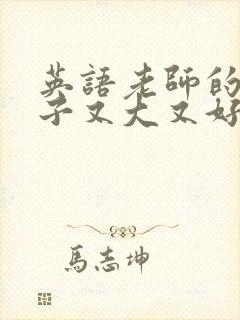 英語老師的
子又大又好
馬志坤